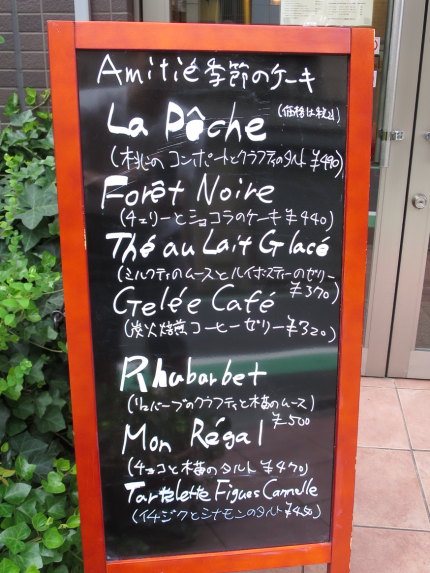 Amitié 季節のケーキ
La Pêche (価格は税込)
(桃のコンポートとクラフティのタルト ¥490)
Forêt Noire
(チェリーとショコラのケーキ ¥440)
Thé au Lait Glacé
(ミルクティのムースとルイボスティーのゼリー
¥370)
Gelée Café
(炭火焙煎コーヒーゼリー ¥320)
Rhubarbet
(リュバーブのクラフティと苺のムース)
¥500
Mon Régal
(チョコと苺のタルト ¥470)
Tartelette Figues Cannelle
(イチジクとシナモンのタルト ¥450)